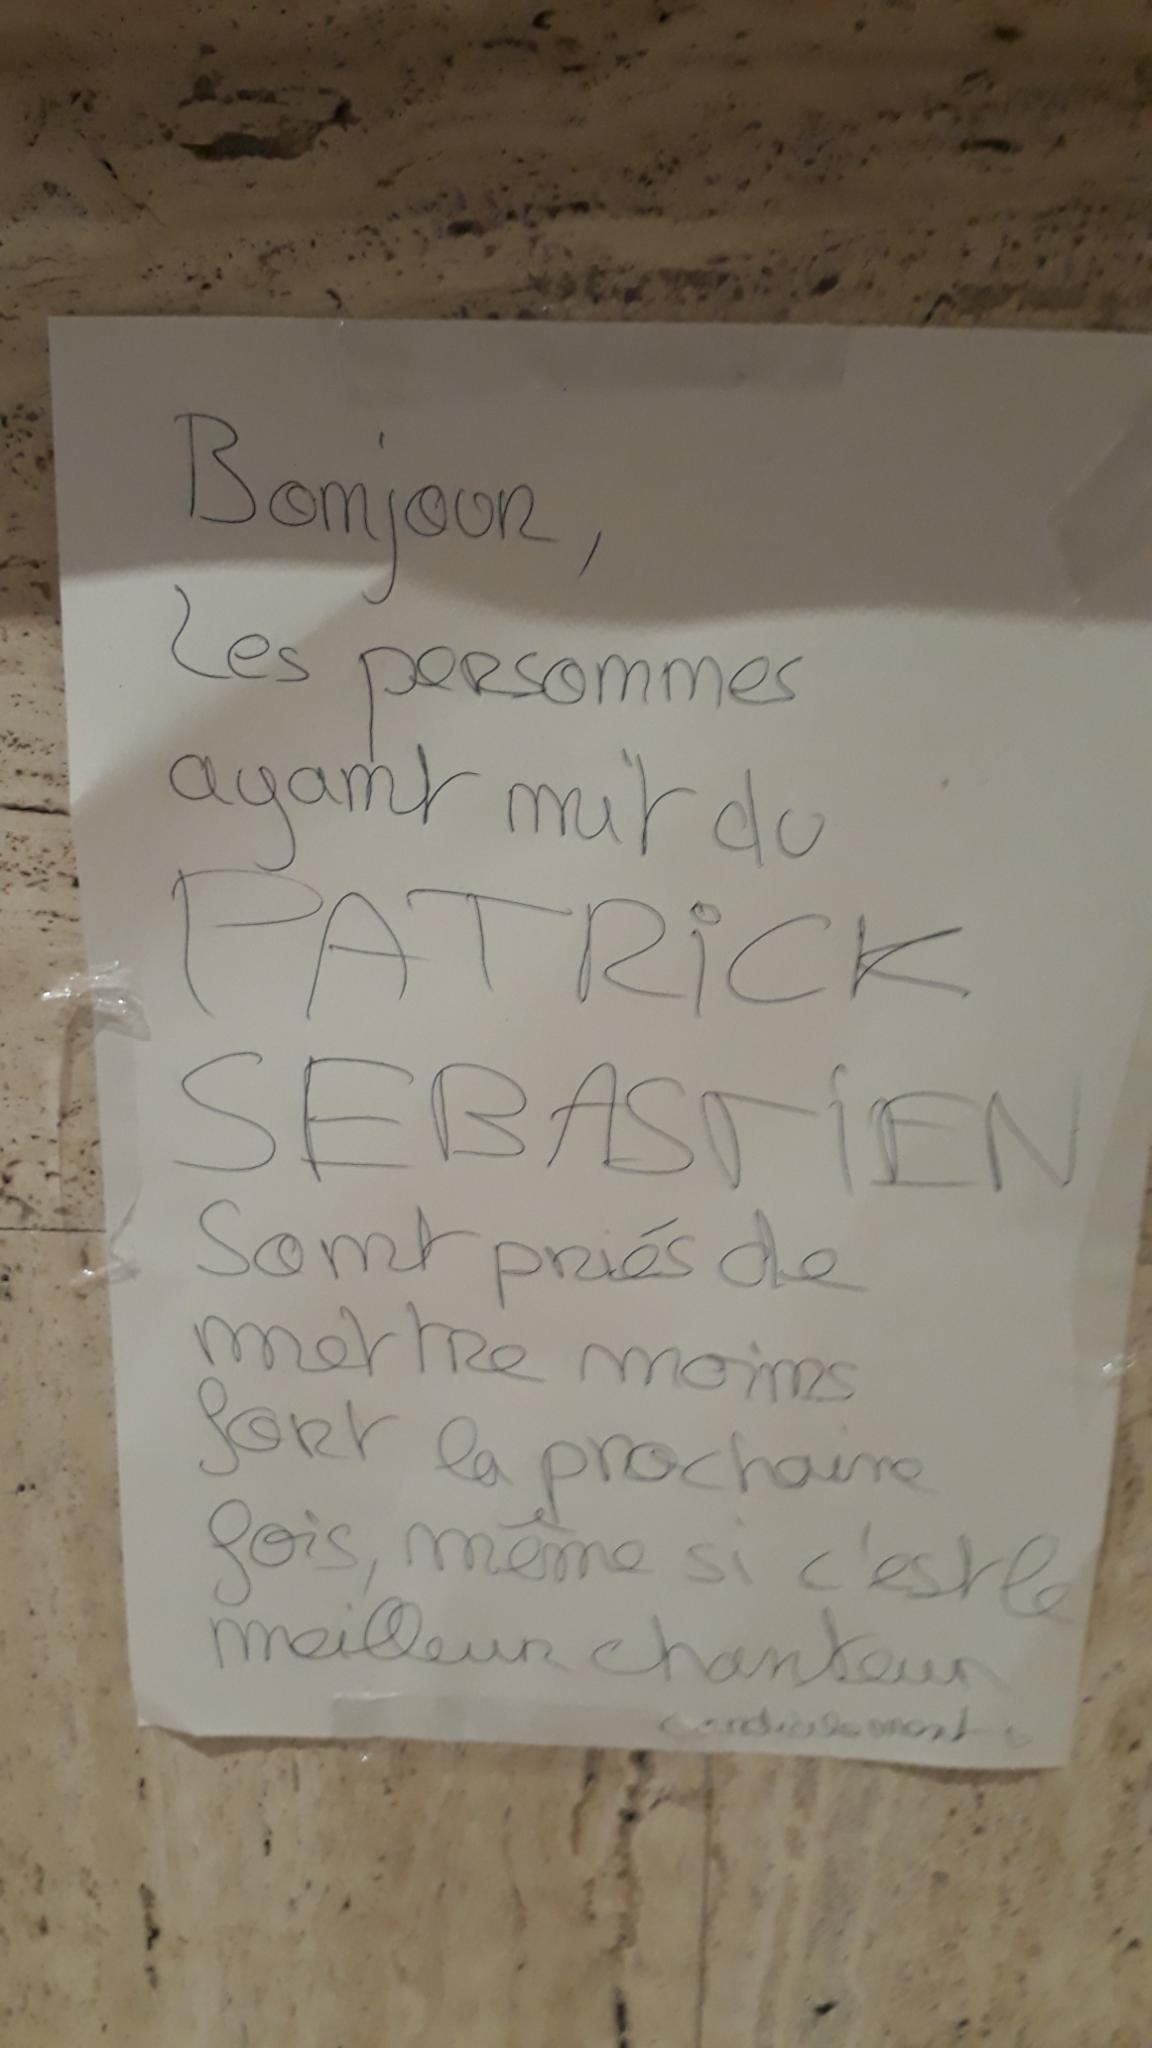 Bonjour,
Les personnes
ayant mit du
PATRiCK
SEBASTiEN
Sont priés de
mettre moins
fort la prochaine
fois, même si c'est le
meilleur chanteur
cordialement.